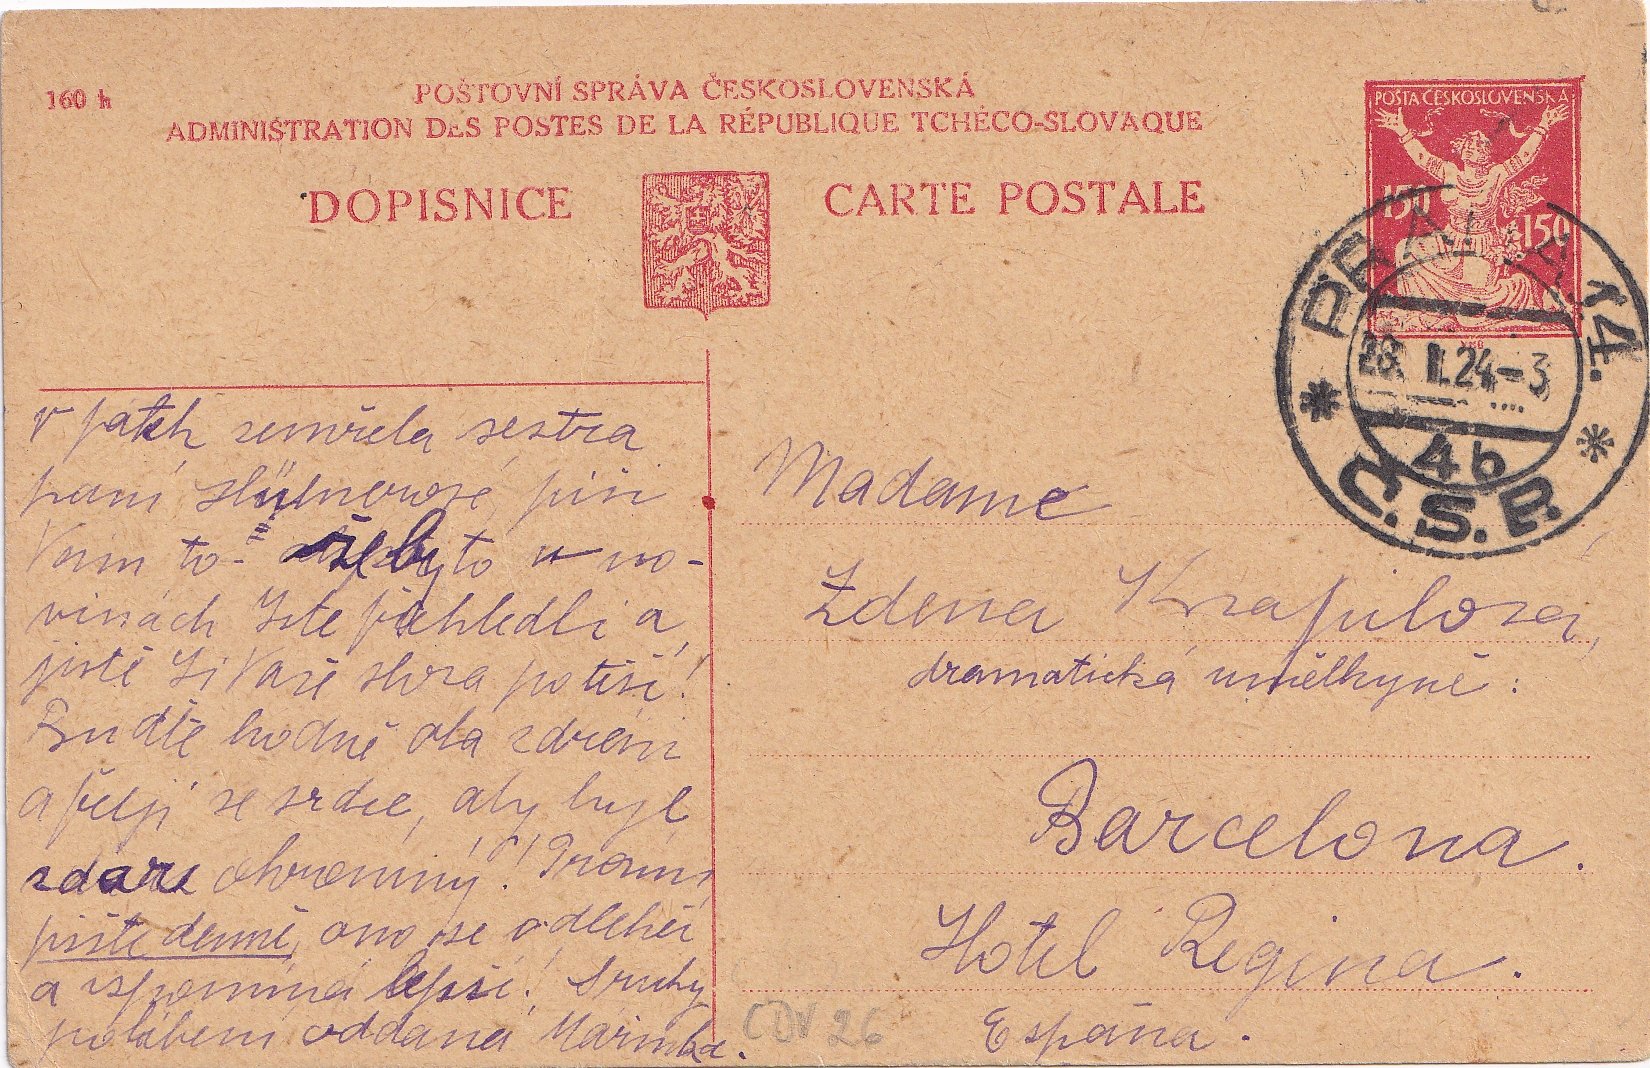 160 h
POŠTOVNÍ SPRÁVA ČESKOSLOVENSKÁ
ADMINISTRATION DES POSTES DE LA RÉPUBLIQUE TCHÉCO-SLOVAQUE
DOPISNICE
CARTE POSTALE
POŠTA ČESKOSLOVENSKÁ
150
150
PRAHA 14.
28. I. 24-3
4b
Č.S.P.
v pátek zemřela sestra
paní píši
Vám to- byto u no-
vinách Jste přehledli a
jistě Ji Vaše slova potěší!
Buďte hodně oba zdrávi
a přeji ze srdce, aby byl
zdar ohromný! Prosím,
pište denně, ono se odlehčí
a vzpomíná lépe!
políbení oddaná
Madame
Zdena Krapilová,
dramatická umělkyně:
Barcelona.
Hotel Regina.
España.
CDV 26